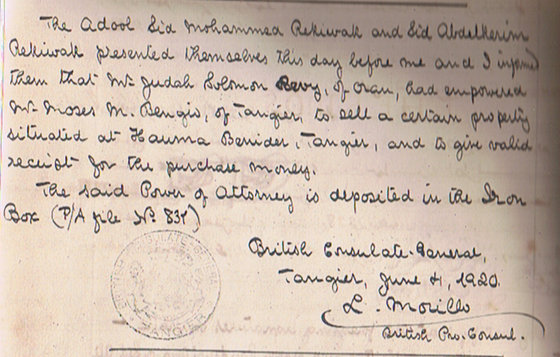 The Adool Sid Mohammed Rekiwak and Sid Abdelkerim
Rekiwak presented themselves this day before me and I informed
them that Mr Judah Solomon Levy, of Oran, had empowered
Mr Moses M. Bengis, of Tangier, to sell a certain property
situated at Hauma Benider, Tangier, and to give valid
receipt for the purchase money.
The said Power of Attorney is deposited in the Iron
Box (P/A file Nº 837)
British Consulate-General,
Tangier, June 4, 1920.
L. Morillo
British Pro-Consul.
TANGIER